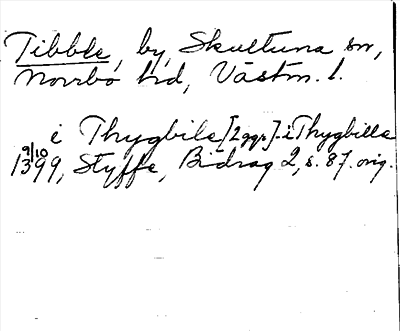 Tibble, by, Skultuna sn,
Norrbo hd, Västm. l.
i Thygbile [2 ggr]. i Thygbilla
9/10
1399, Styffe, Bidrag 2, s. 87. orig.